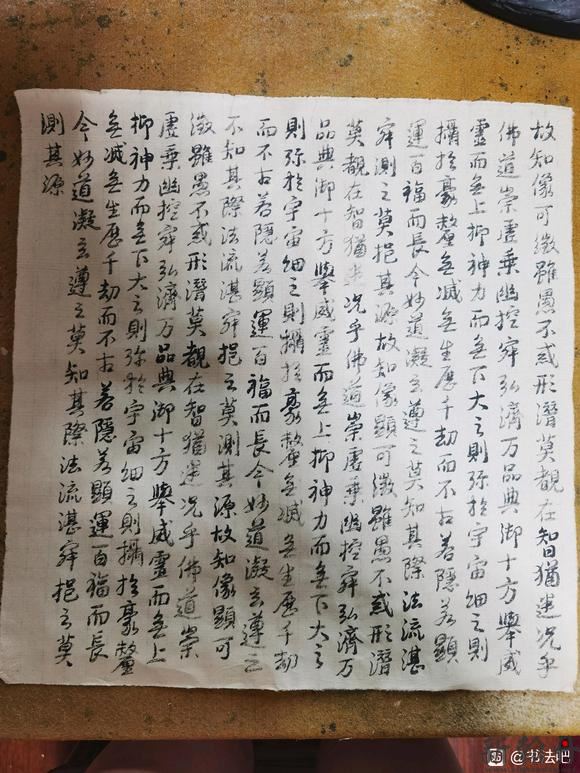 故知像可徵雖愚不惑形潛莫覩在智猶迷况乎
佛道崇虛乘幽控寂弘濟万品典御十方舉威
靈而無上抑神力而無下大之則弥於宇宙細之則
攝於豪釐無滅無生歷千劫而不古若隱若顯
運百福而長今妙道凝玄遵之莫知其際法流湛
寂測之莫挹其源故知像顯可徵雖愚不惑形潛
莫覩在智猶迷况乎佛道崇虛乘幽控寂弘濟万
品典御十方舉威靈而無上抑神力而無下大之
則弥於宇宙細之則攝於豪釐無滅無生歷千劫
而不古若隱若顯運百福而長今妙道凝玄遵之
不知其際法流湛寂挹之莫測其源故知像顯可
徵雖愚不惑形潛莫覩在智猶迷况乎佛道崇
虛乘幽控寂弘濟万品典御十方舉威靈而無上
抑神力而無下大之則弥於宇宙細之則攝於豪釐
無滅無生歷千劫而不古若隱若顯運百福而長
今妙道凝玄遵之莫知其際法流湛寂挹之莫
測其源
@书法吧